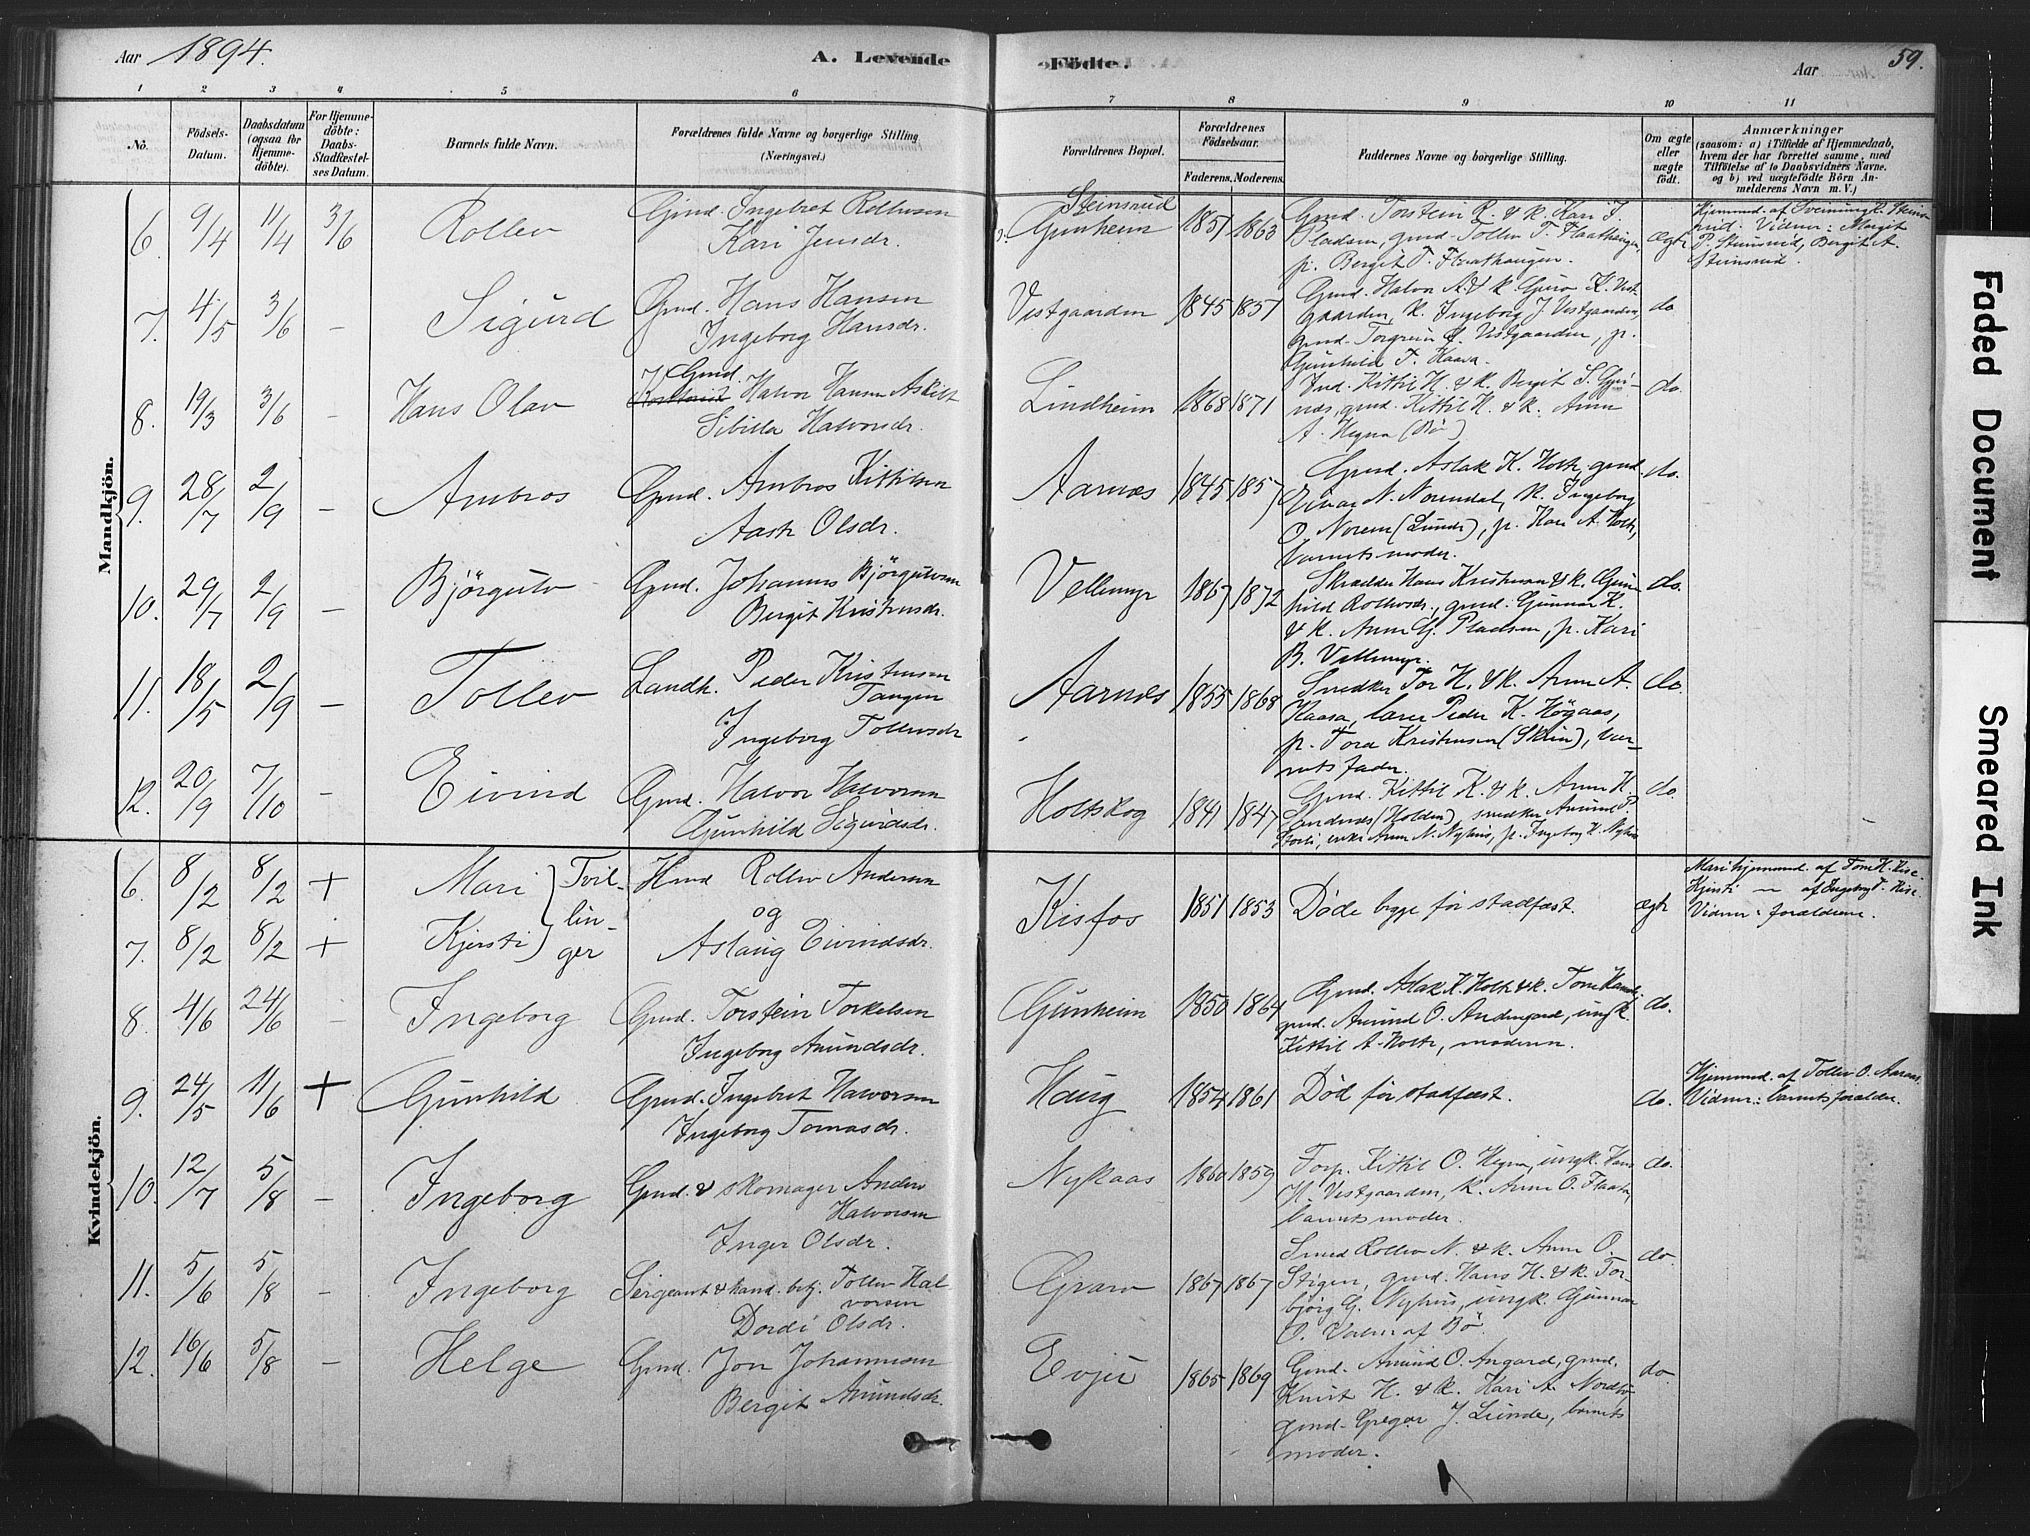 Aar 1894.
A. Levende
Födte.
Aar
59.
1 2 3 4 5 6 7 8 9 10 11
No.
Födsels-Datum.
Daabsdatum (ogsaa för Hjemme-döbte).
For Hjemme-döbte: Daabs-Stadfæstel-ses Datum.
Barnets fulde Navn.
Forældrenes fulde Navne og borgerlige Stilling (Næringsvei.)
Forældrenes Bopæl.
Forældrenes Födselsaar.
Faderens. Moderens.
Faddernes Navne og borgerlige Stilling.
Om ægte eller uægte födt.
Anmærkninger
(saasom: a) i Tilfælde af Hjemmedaab, hvem der har forrettet samme, med Tilföielse af to Daabsvidners Navne. og b) ved uægtefödte Börn An-melderens Navn m. V.)
Mandkjön.
6. 9/4 11/4 3/6 Rollev
Gmd. Ingebret Rollevsen
Kari Jensdr.
Steinsrud
Gunheim 1857 1863
Gmd. Torstein R. & k. Kari J.
Pladsen, gmd. Tollev T. Flaathaugen
p. Berget T. Flaathaugen.
ægte
Hjemmed. af Sveinung R. Steins-
rud. Vidner: Margit
P. Steinsrud, Bergit A.
Steinsrud.
7. 4/5 3/6 – Sigurd
Gmd. Hans Hansen
Ingeborg Hansdr.
Vestgaarden 1845 1857
Gmd. Halvor A. & k. Guro K. Vest-
gaarden, k. Ingeborg J. Vestgaarden,
gmd. Torgrim Vestgaarden, p.
Gunhild T. Haava.
do
8. 19/3 3/6 – Hans Olav
Gmd.
Halvor Hansen Askilt
Sibilla Halvorsdr.
Lindheim 1868 1871
Ind. Kittil H. & k. Bergit S.
gmd. Kittil H. & k. Anne
A. Hegna (Bø)
do.
9. 28/7 2/9 – Ambros
Gmd. Ambros Kittilsen
Aaste Olsdr.
Aarnæs 1845 1857
Gmd. Aslak K. Holte, gmd.
Einar N. Norendal, k. Ingeborg
O. Norem (Lunde), p. Kari A. Holte,
barnets moder.
do.
10. 29/7 2/9 – Björgulv
Gmd. Johannes Björgulvsen
Bergit Kristensdr.
Vellemyr 1867 1872
Skrædder Hans Kristensen & k. Gun-
hild Rollevsdr., gmd. Gunnar K.
& k. Anne G. Pladsen, p. Kari
B. Vellemyr.
do.
11. 18/5 2/9 – Tollev
Landh. Peder Kristensen
Tangen
Ingeborg Tollevsdr
Aarnæs 1855 1868
Snedker Tor H. & k. Anne A.
Kaasa, lærer Peder K. Høgaas,
p. Tora Kristensen (Skien), bar-
nets fader.
do.
12. 20/9 7/10 – Eivind
Gmd. Halvor Halvorsen
Gunhild Sigurdsdr.
Holtskog 1841 1847
Gmd. Kittil K. & k. Anne H.
Sandnæs (Holden), snedker Amund P.
enke Anne N. Nyhus, p. Ingeborg H. Nyhus
do.
Kvindekjön.
6. 8/2 8/2 + Mari } Tvil-
7. 8/2 8/2 + Kjersti } lin-
ger
Hmd Rollev Andersen
og
Aslaug Eivindsdr.
Kisfos 1851 1853
Døde begge før stadfæst.
ægte
Mari hjemmed. af Tone K. Kise.
Kjersti — af Ingeborg T. Kise.
Vidner: forældrene.
8. 4/6 24/6 – Ingeborg
Gmd. Torstein Torkelsen
Ingeborg Amundsdr.
Gunheim 1850 1864
Gmd. Aslak K. Holte & k. Tone
gmd. Amund O. Andengaard, ungk.
Kittil A. Holte, moderen.
do.
9. 24/5 11/6 + Gunhild
Gmd. Ingebret Halvorsen
Ingeborg Tomasdr.
Haug 1854 1861
Død før stadfæst.
do.
Hjemmed. af Tollev O. Aaraas
Vidner: barnets forældre.
10. 12/7 5/8 – Ingeborg
Gmd. & skomager Anders
Halvorsen
Inger Olsdr.
Nykaas 1860 1859
Forp. Kittil O. Hegna, ungk. Hans
H. Vestgaarden, k. Anne O. Flaata,
barnets moder.
do.
11. 5/6 5/8 – Ingeborg
Sergeant & hand. betj. Tollev Hal
vorsen
Dordi Olsdr.
Grave 1867 1867
Smed Rollev N. & k. Anne O.
Stigen, gmd. Hans H. & k. Tor-
bjørg G. Nyhus, ungk. Gunnar
O. af Bø.
do.
12. 16/6 5/8 – Helge
Gmd. Jon Johannesen
Bergit Amundsdr.
Evju 1865 1869
Gmd. Amund O. Angard, gmd.
Knut H. & k. Kari A. Nordbø,
gmd. Gregar J. Lunde, barnets
moder.
do.
Faded Document
Smeared Ink